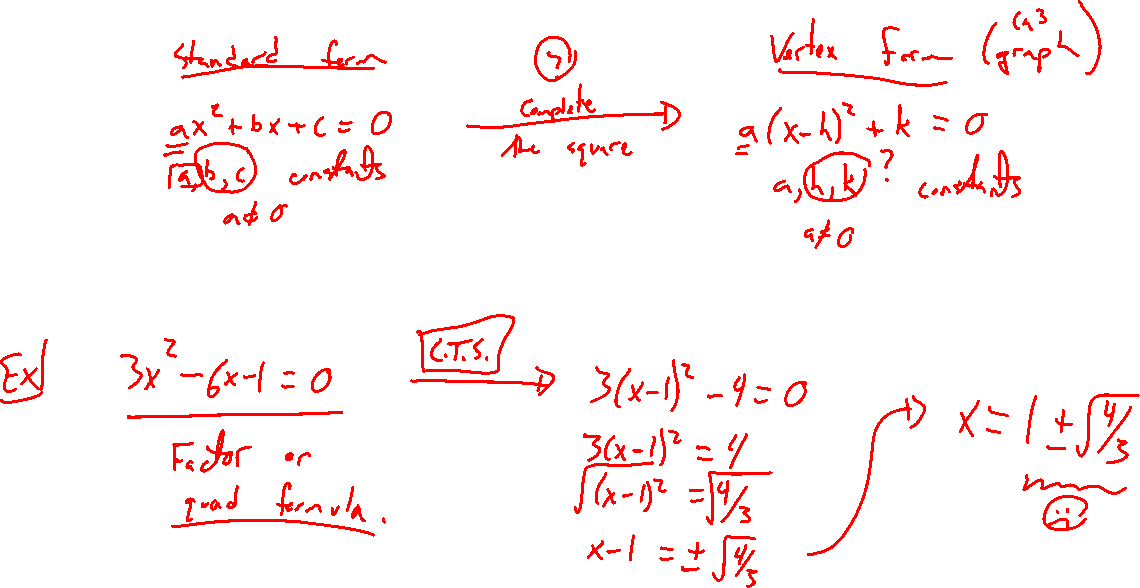 Standard form
ax² + bx + c = 0
a, b, c constants
a ≠ 0
Complete
the square
Vertex Form (
graph)
a(x-h)² + k = 0
a, h, k ? constants
a ≠ 0
Ex
3x² - 6x - 1 = 0
Factor or
quad formula.
C.T.S.
3(x-1)² - 4 = 0
3(x-1)² = 4
√(x-1)² = √4/3
x - 1 = ± √4/3
x = 1 ± √4/3